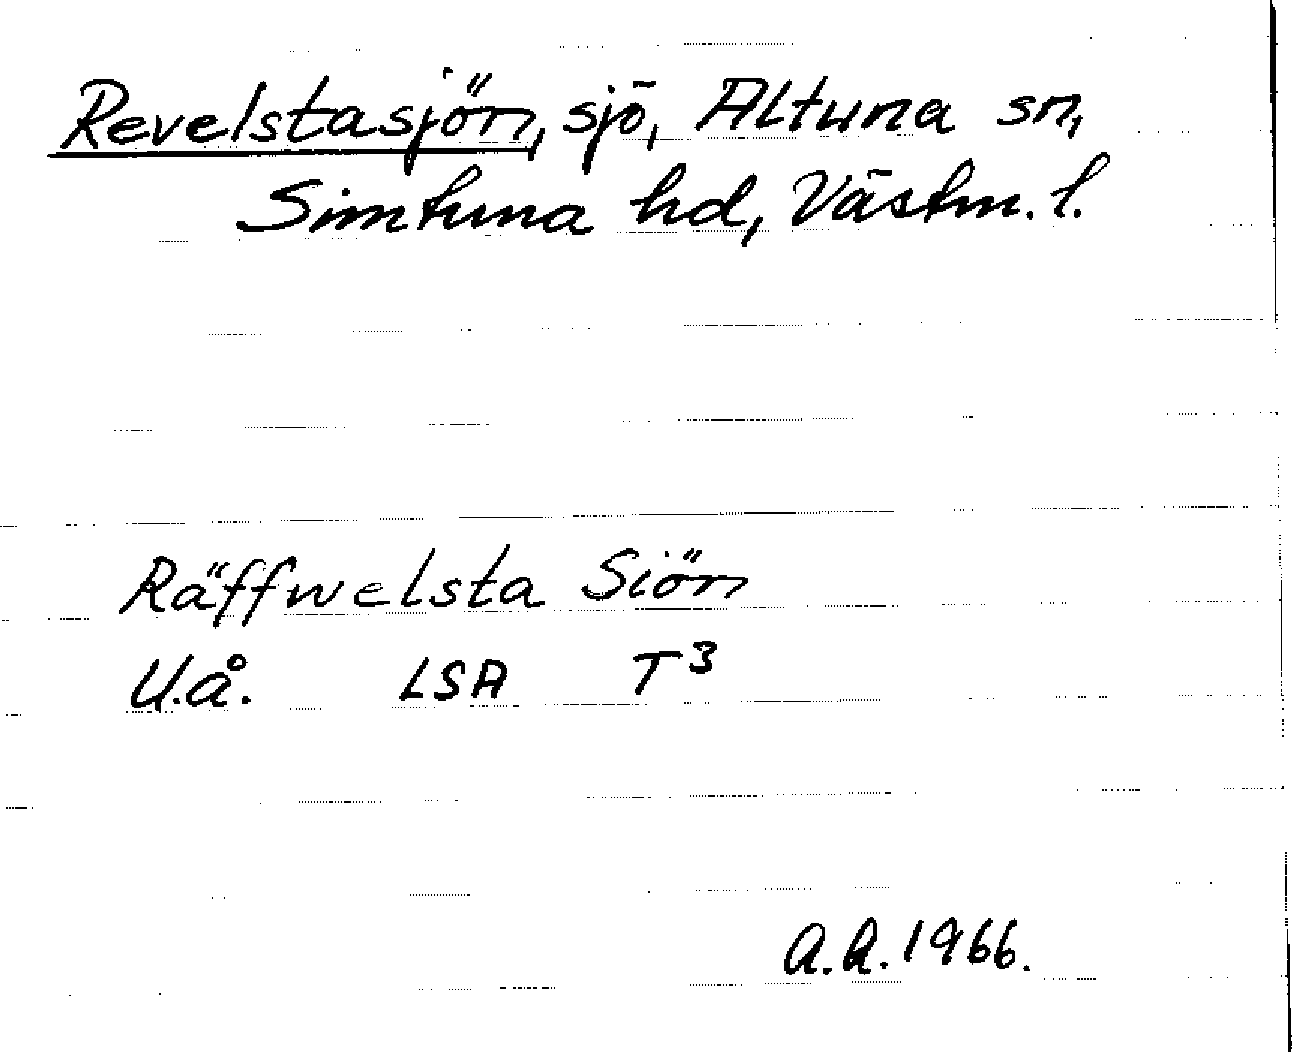 Revelstasjön, sjö, Altuna sn,
Simtuna hd, Västm. l.
Räffwelsta Siön
U.å. LSA T³
A.A. 1966.